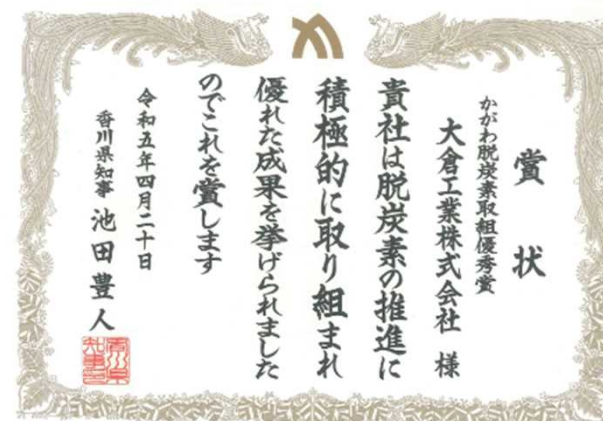 賞状
かがわ脱炭素取組優秀賞
大倉工業株式会社 様
貴社は脱炭素の推進に
積極的に取り組まれ
優れた成果を挙げられました
のでこれを賞します
令和五年四月二十日
香川県知事 池田豊人
香川県知事印